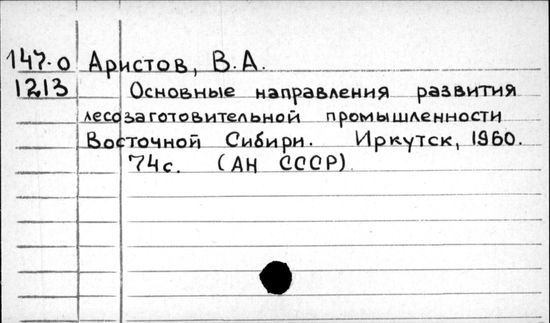 147.0 Аристов, В.А.
1213 Основные направления развития
лесозаготовительной промышленности
Восточной Сибири. Иркутск, 1960.
74с. (АН СССР)